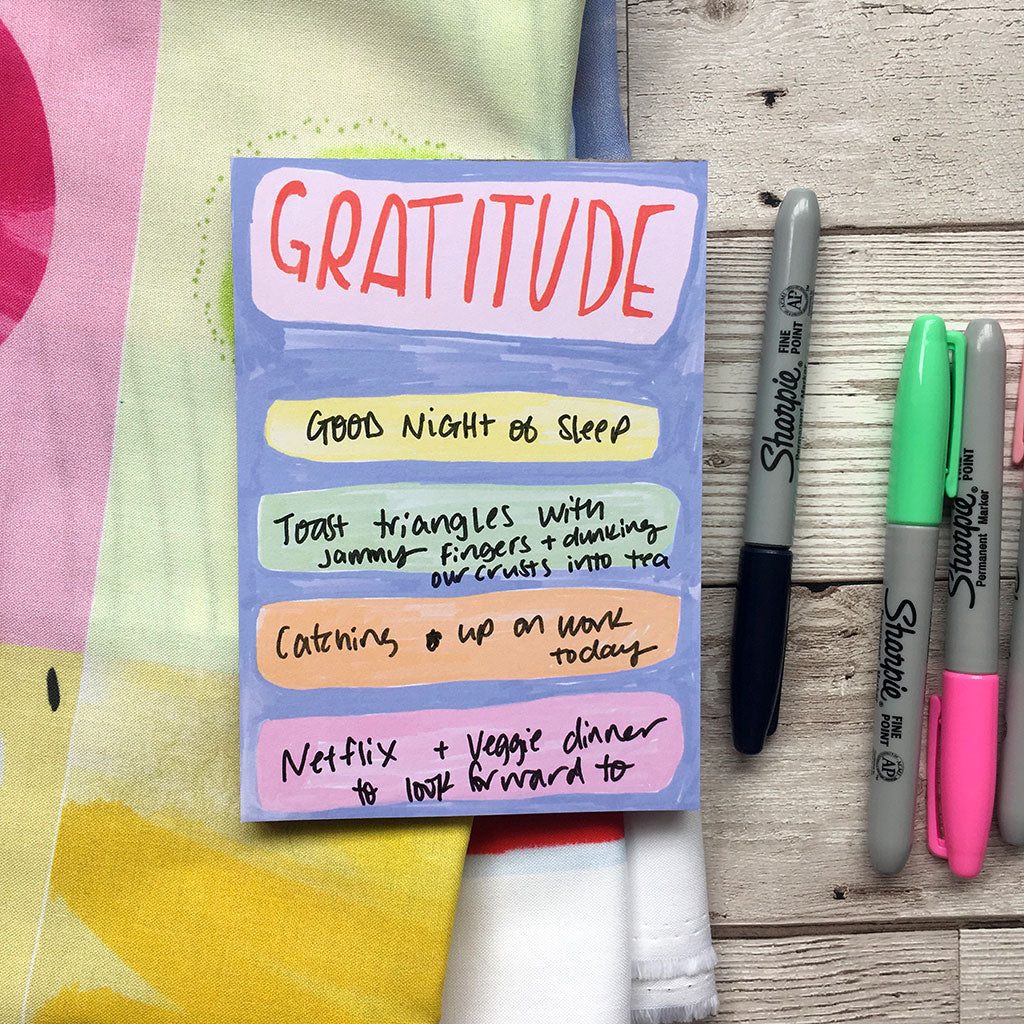 GRATITUDE
GOOD NIGHT OF SLEEP
Toast triangles with
jammy fingers + dunking
our crusts into tea
Catching up on work
today
Netflix + Veggie dinner
to look forward to
Sharpie® FINE POINT
AP
Sharpie FINE POINT
AP
Sharpie® FINE POINT
Permanent Marker